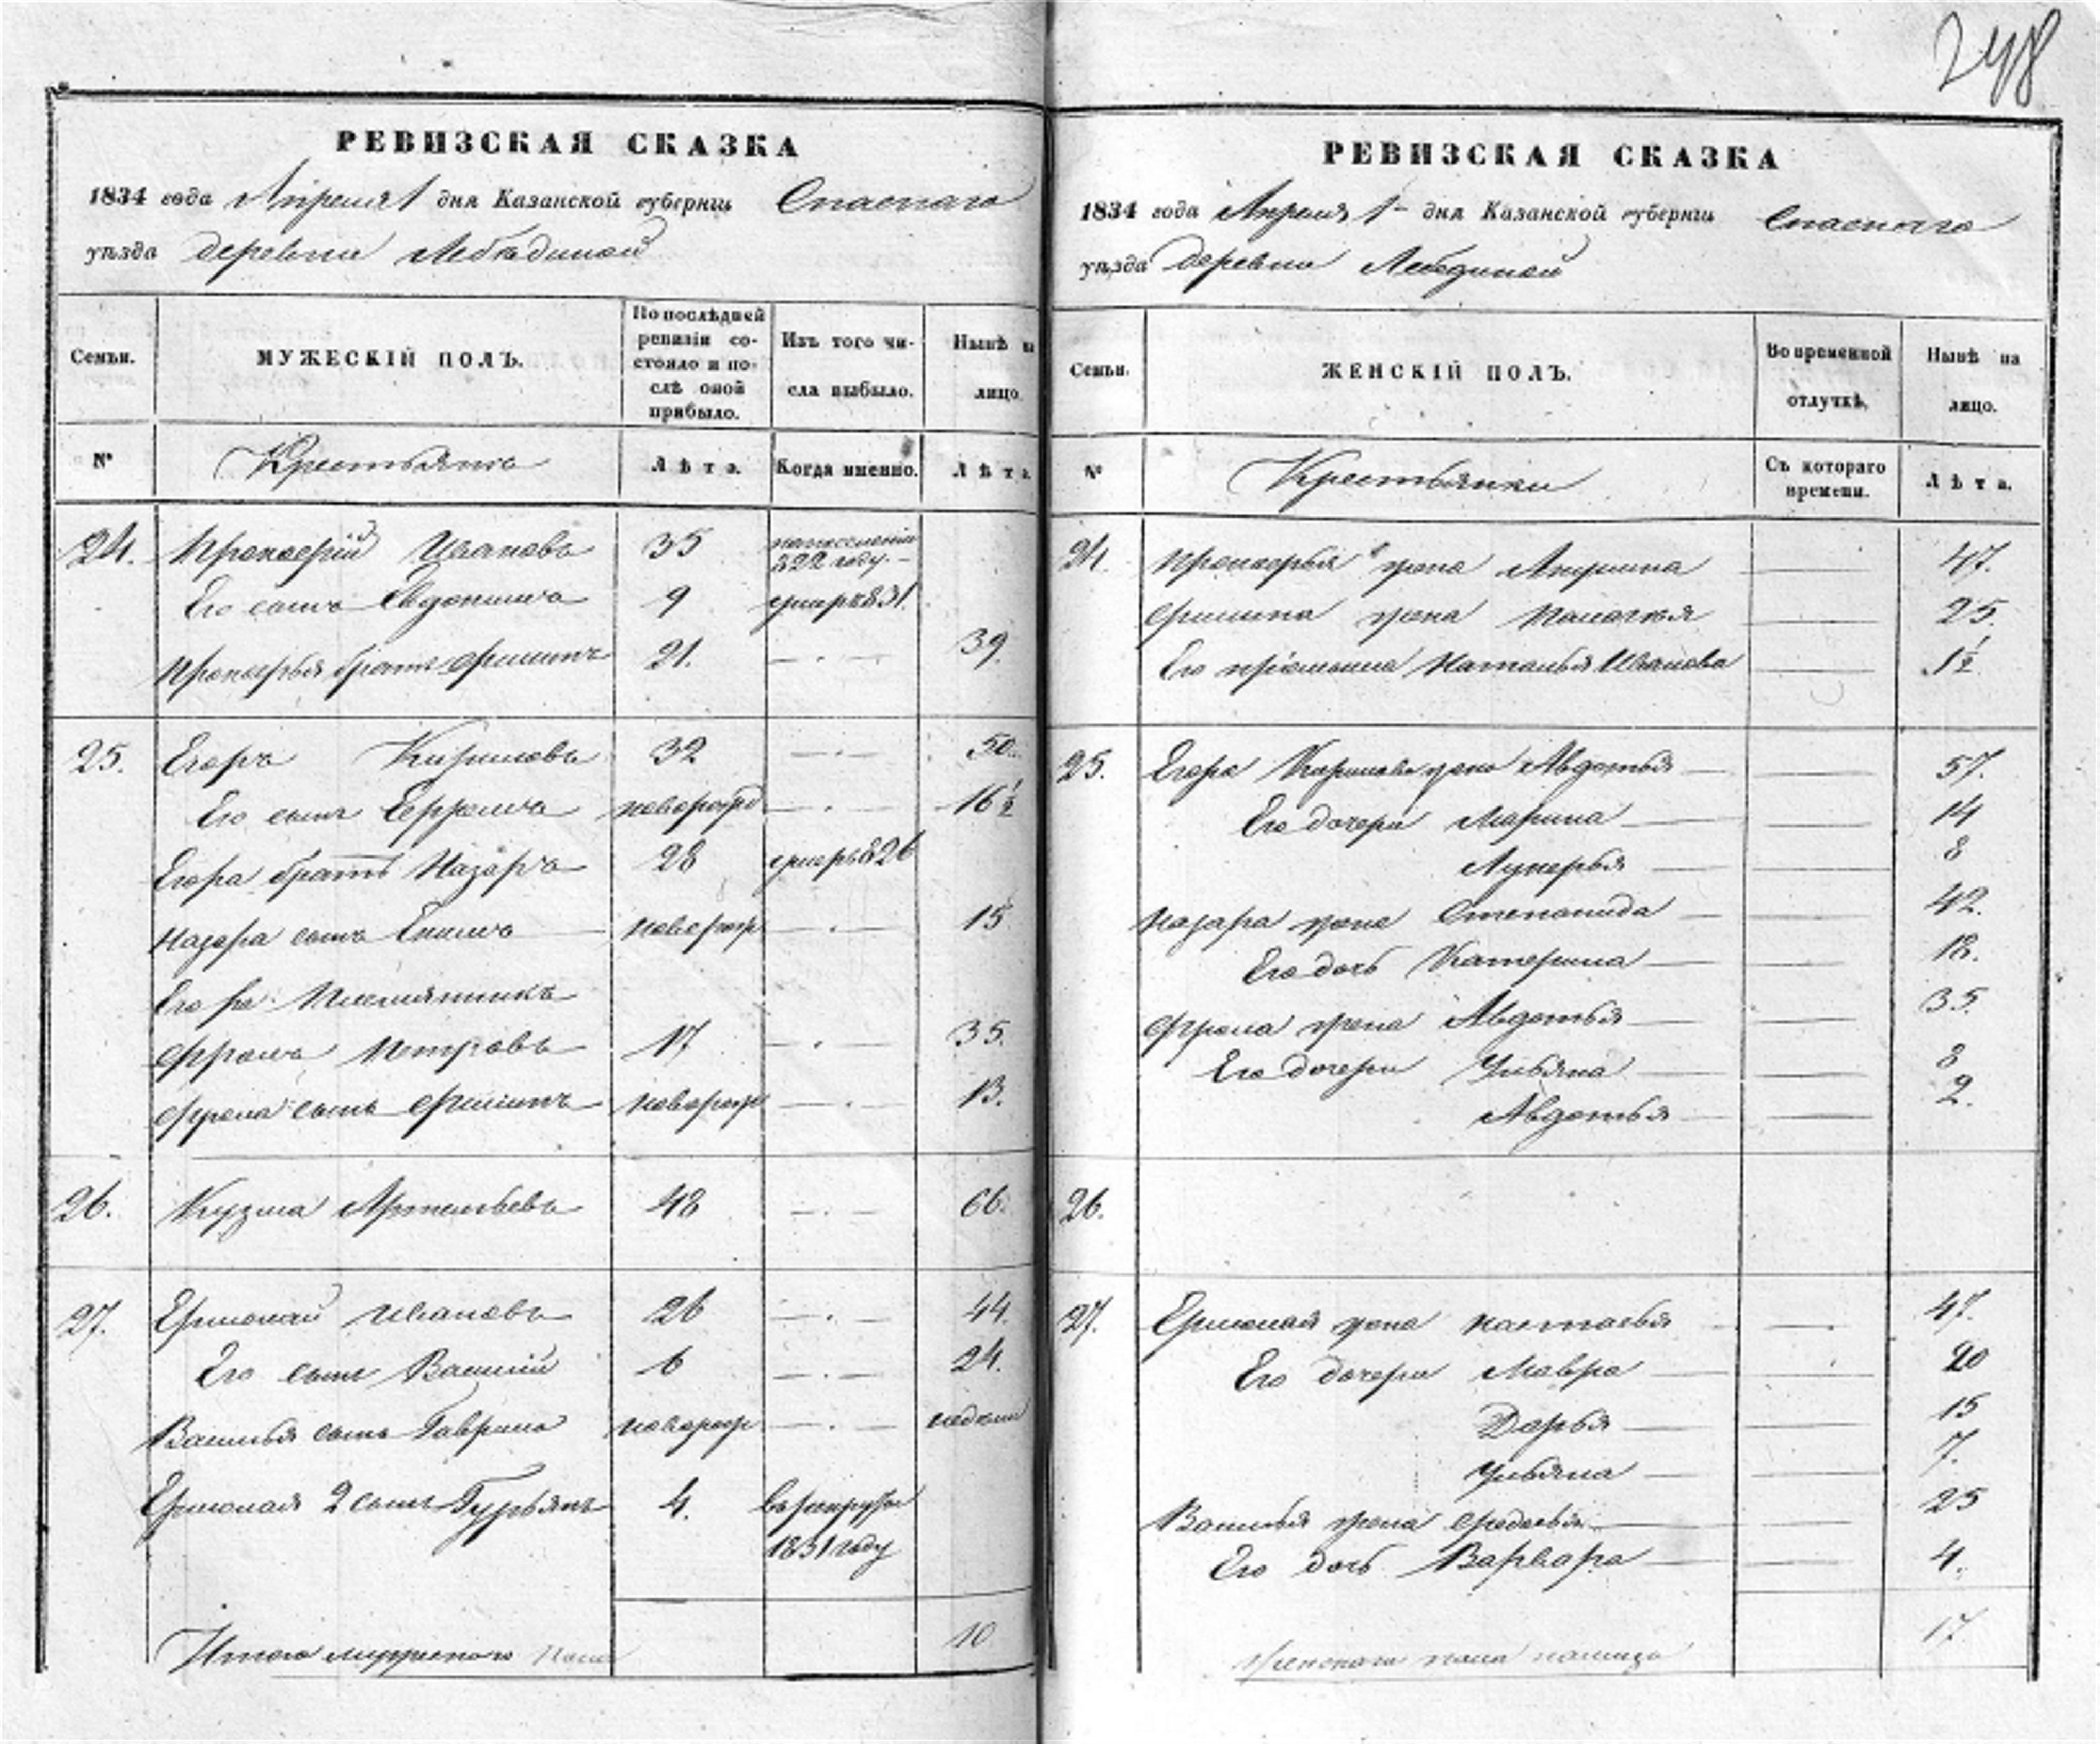 248
РЕВИЗСКАЯ СКАЗКА
1834 года Апреля 1 дня Казанской губернiи Спаскаго
уѣзда деревни Лебѣдиной
Семьи.
МУЖЕСКIЙ ПОЛЪ.
По послѣдней ревизiи со-
стояло и по-
слѣ оной
прибыло.
Изъ того чи-
сла выбыло.
Нынѣ на
лицо.
№
Крестьяне
Лѣта.
Когда именно.
Лѣта.
24. Прокофiй Ивановъ 35 на поселенiи 822 году.
Его сынъ Евдокимъ 9 умеръ 831
Прокофья братъ Филипъ 21. 39.
25. Егоръ Кириловъ 32 50.
Его сынъ Ефремъ новорожд 16 1/2
Егора братъ Назаръ 28 умеръ 826
Назара сынъ Екимъ новорож 15
Егора племянникъ
Фролъ Петровъ 17 35.
Фрола сынъ Филипъ новорож 13.
26. Кузма Артемьевъ 48 66.
27. Ермолай Ивановъ 26 44.
Его сынъ Василiй 6 24.
Василья сынъ Гаврила новорож
Ермолая 2 сынъ Гурьянъ 4. в рекруты
1831 году
Итого мужескаго пола 10
РЕВИЗСКАЯ СКАЗКА
1834 года Апреля 1 дня Казанской губернiи Спаскаго
уѣзда деревни Лебединой
Семьи.
ЖЕНСКIЙ ПОЛЪ.
Во временной
отлучкѣ,
Нынѣ на
лицо.
№
Крестьянки
Съ котораго
времени.
Лѣта.
24. Прокофья жена Акулина 47.
Филипа жена Палагея 25.
Его прiемыша Наталья Иванова 1 1/2
25. Егора Кирилова жена Авдотья 57.
Его дочери Марина 14
Лукерья 8
Назара жена Степанида 42.
Его дочь Катерина 12.
Фрола жена Авдотья 35.
Его дочери Ульяна 8
Авдотья 2.
26.
27. Ермолая жена Настасья 47.
Его дочери Мавра 20
Дарья 15
Ульяна 7.
Василья жена Федосья 25
Его дочь Варвара 4.
Женскаго пола налицо 17.